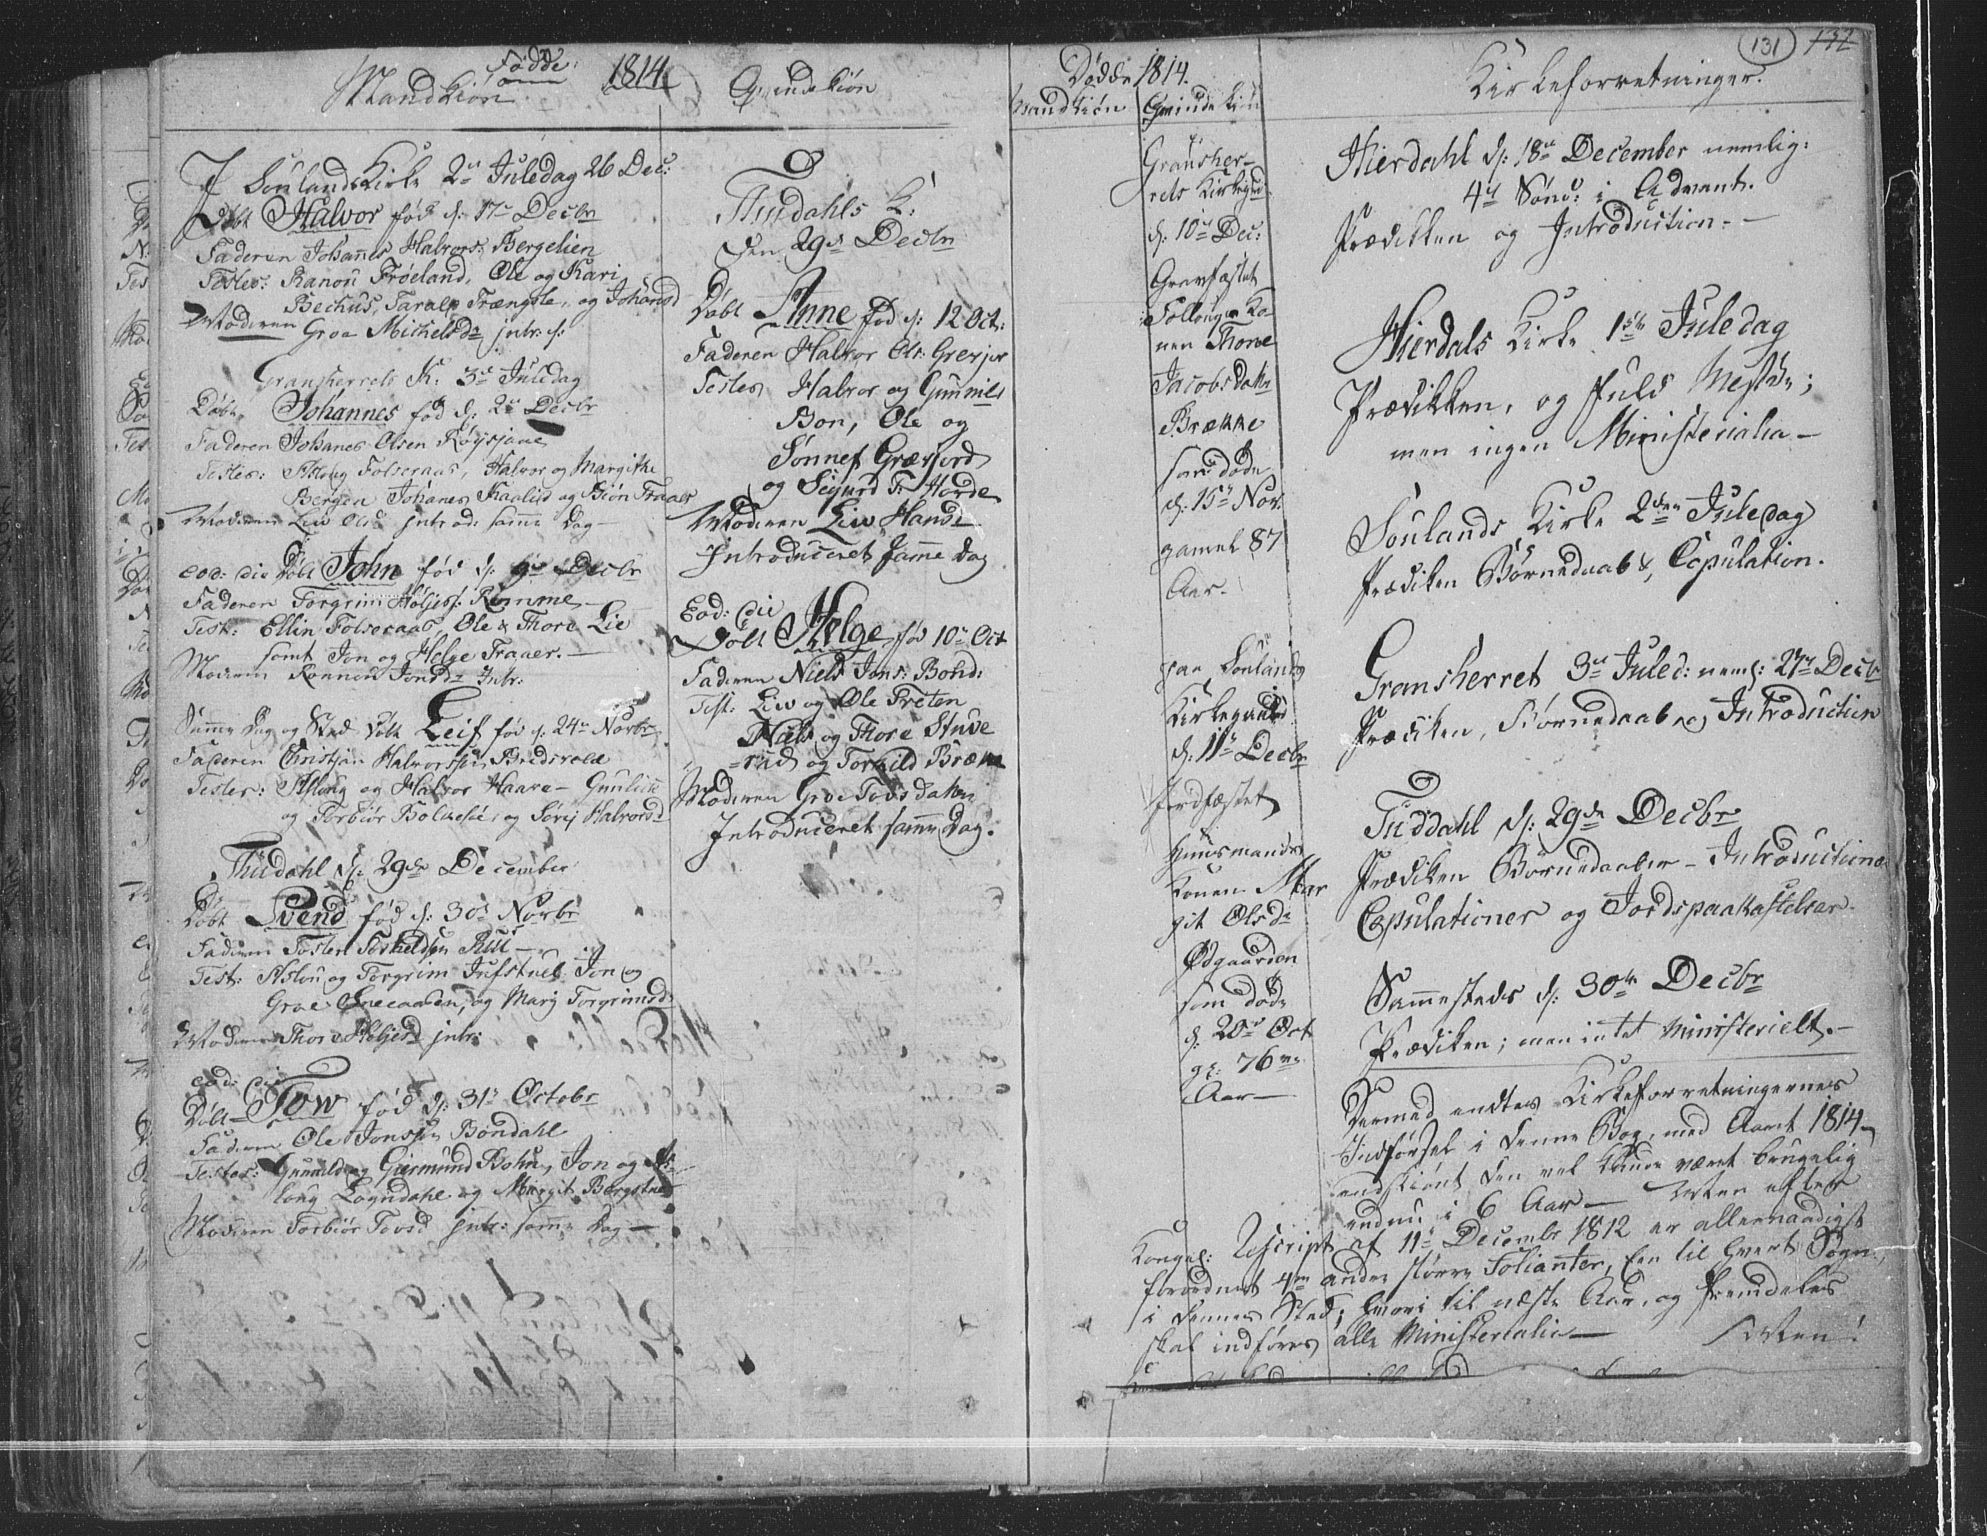 Fødde:
Mandkiøn 1814 Qvindekiøn
I Soulands Kirke 2n Juledag 26 Dec:
Døbt Halvor fød d: 17n Decbr
Faderen Johannes Halvors: Bergelien
Testes: Ranou Frøeland, Ole og Kari
Bechus, Taralp Trængsle, og Johannd
Moderen Groe Michelsdr jntr: d:
Gransherrets K: 3n Juledag
Døbt Johannes fød d: 2n Decbr
Faderen Johanes Olsen Røysjane
Testes: Asloug Folseraas, Halvor og Margithe
Bergen Johanes Kaalid og Biøn Traaer
Moderen Liw Olsd jntrod: samme Dag
eod: die Døbt John fød d: 9n Decbr
Faderen Torgrim Høljes: Romme
Test: Ellin Folseraas, Ole & Thore Lie
samt Jon og Helge Traaer.
Moderen Ronnou Jonsdr Intr:
Samme Dag og Sted døbt Leif fød d: 24n Novbr
Faderen Christjan Halvorssen Bredsvold
Testes: Asloug og Halvor Haave - Gunlich
og Torbiør Bolkesie, og Sørij Halvordsdr
Thudahl d: 29de December
Døbt Svend fød d: 30t Novbr
Faderen Tosten Toskeldsen Rui
Test: Aslou og Torgrim Jufstuel Jon og
Groe Sneeaaden, og Marij Torgrimsd
Moderen Thore Høljesd jntr:
eod: die
Døbt Tow fød d: 31t Octobr
Faderen Ole Jonssen Bøndahl
Testes: Gunild og Giermund Bøhn, Jon og As-
loug Logndahl og Margit Bergstue
Moderen Torbiør Tovsd jntr: samme Dag
Thudahls K:
Den 29de Decbr
Døbt Anne fød d: 12 Oct:
Faderen Halvor Ols: Grevjor
Testes Halvor og Gunnild
Bon, Ole og
Sønnef Grævjord
og Sigurd Tr Horde
Moderen Liw Hansd
Introduceret samme Dag
Eod: die
Døbt Helge fød 10n Oct
Faderen Niels Jons: Bohd:
Test: Liw og Ole Preten
Niels og Thore Stuve
=rud og Torkild Bræke
Moderen Groe Tovsdatter
Introduceret samme Dag.
Dødde 1814.
Mandkiøn Qvindekiøn
Gransher-
rets Kirkegrd
d: 10n Dec:
Gravfæstet
Follougen Ko
nen Thone
Jacobsdatr
Brække
som døde
d: 15n Nov:
gamel 87
Aar.
paa Soulands
Kirkegaard
d: 11n Decbr
jordfæstet
Huusmands
Konen Mar
git Olsdr
Ødgaarden
som døde
d: 20n Oct
gl: 76
Aar
131 132
Kirkeforretninger.
Hierdahl d: 18n December nemlig:
4n Sønd: i Advent.
Prædikken og Introduction.
Hierdals Kirke 1ste Juledag
Prædikken, og fuld Messe;
men ingen Ministerialia
Soulands Kirke 2den Juledag
Prædiken Børnedaab &, Copulation.
Gransherret 3n Juled: neml: 27n Decbr
Prædiken, Børnedaab og Introduction
Tuddahl d: 29de Decbr
Prædiken Børnedaaber - Introductioner
Copulationer og Jordspaakastelser.
Sammesteds d: 30te Decbr
Prædiken; men intet Ministerielt.
Dermed endtes Kirkeforretningernes
Indførsel i denne Bog, med Aaret 1814,
endskiønt den vel kunde været brugelig
endnu i 6 Aar Men efter
Kongel: Rescript af 11n Decembr 1812 er allernaadigst
forordnet 4re andre større Folianter, Een til hvert Sogn,
i dennes Sted, hvori til næste Aar, og fremdeles
skal indføres alle Ministerialia